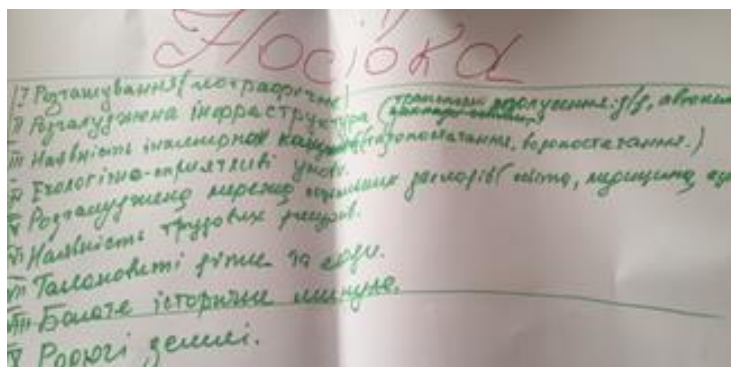 Носівка
I Розташування (географічне)
II Розгалуджена інфраструктура (транспортне сполучення: з/д, автошл
III Наявність інженерних (газопостачання, водопостачання.)
IV Екологічно-сприятливі умови.
V Розгалуджена мережа закладів (освіта, медицина,
VI Наявність трудових ресурсів.
VII Талановиті діти та люди.
VIII Багате історичне минуле.
Родючі землі.